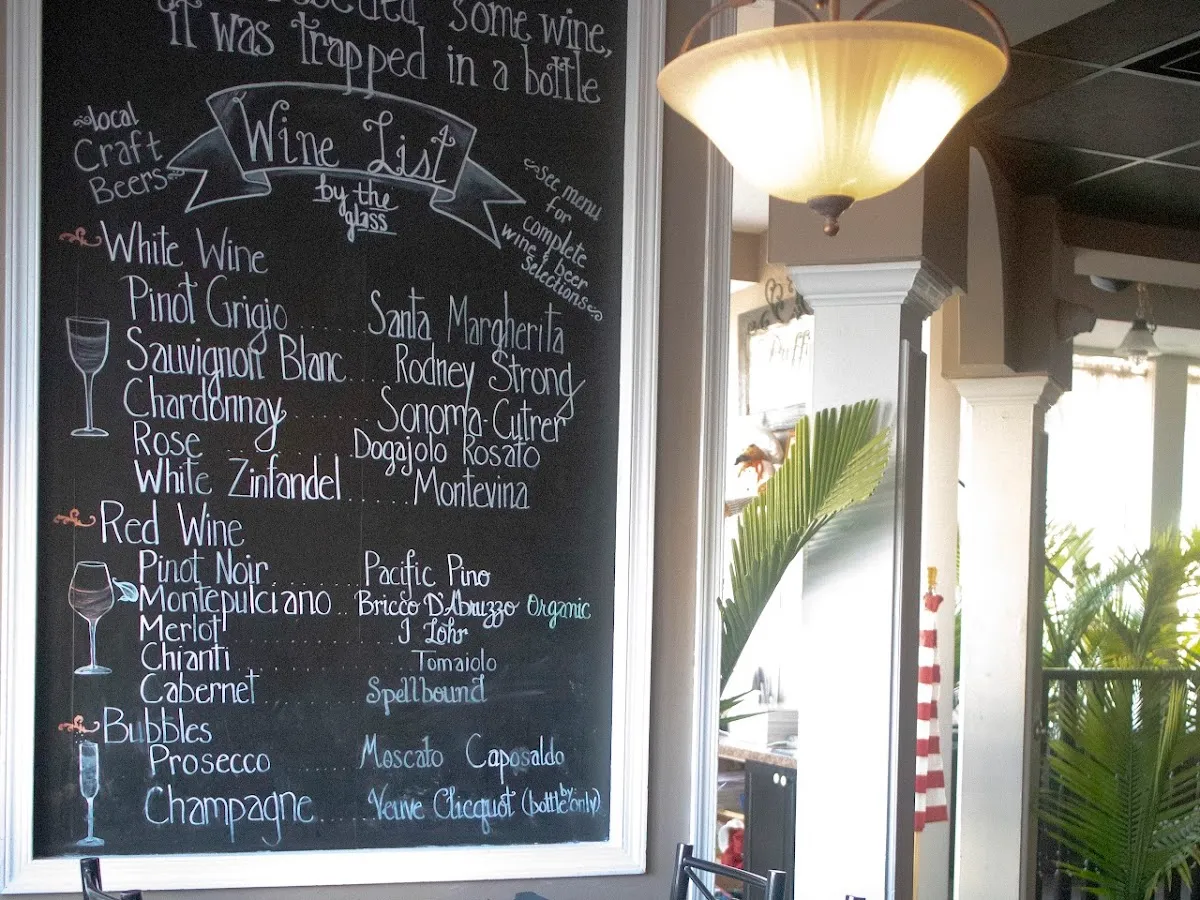 some wine,
it was trapped in a bottle
local
Craft
Beers
Wine List
by the
glass
see menu
for
complete
wine & beer
selections
White Wine
Pinot Grigio ..... Santa Margherita
Sauvignon Blanc .... Rodney Strong
Chardonnay ........ Sonoma-Cutrer
Rose ............ Dogajolo Rosato
White Zinfandel ...... Montevina
Red Wine
Pinot Noir ......... Pacific Pino
Montepulciano .. Bricco D'Abruzzo Organic
Merlot ............ J Lohr
Chianti ............ Tomaiolo
Cabernet ......... Spellbound
Bubbles
Prosecco ....... Moscato Caposaldo
Champagne ..... Veuve Clicquot (bottle by only)